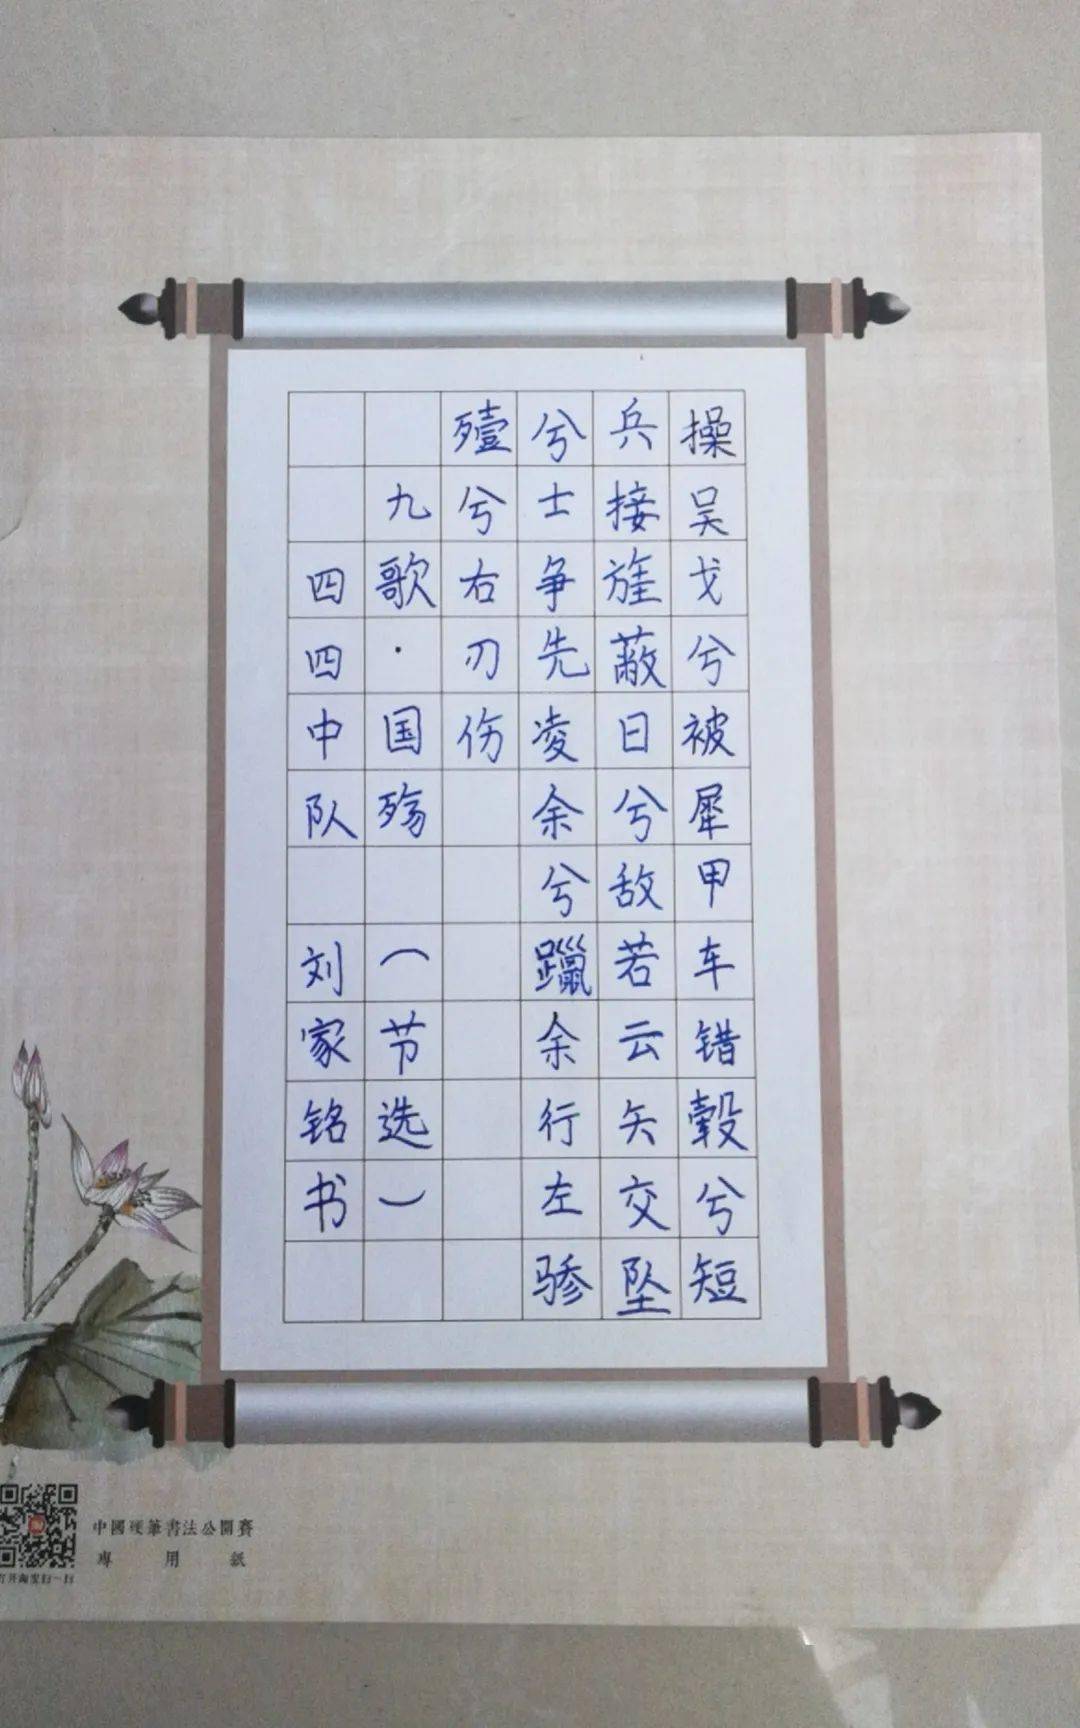 操吴戈兮被犀甲车错毂兮短
兵接旌蔽日兮敌若云矢交坠
兮士争先凌余兮躐余行左骖
殪兮右刃伤
九歌·国殇（节选）
四四中队 刘家铭书
中國硬筆書法公開賽
專用紙
打开淘宝扫一扫